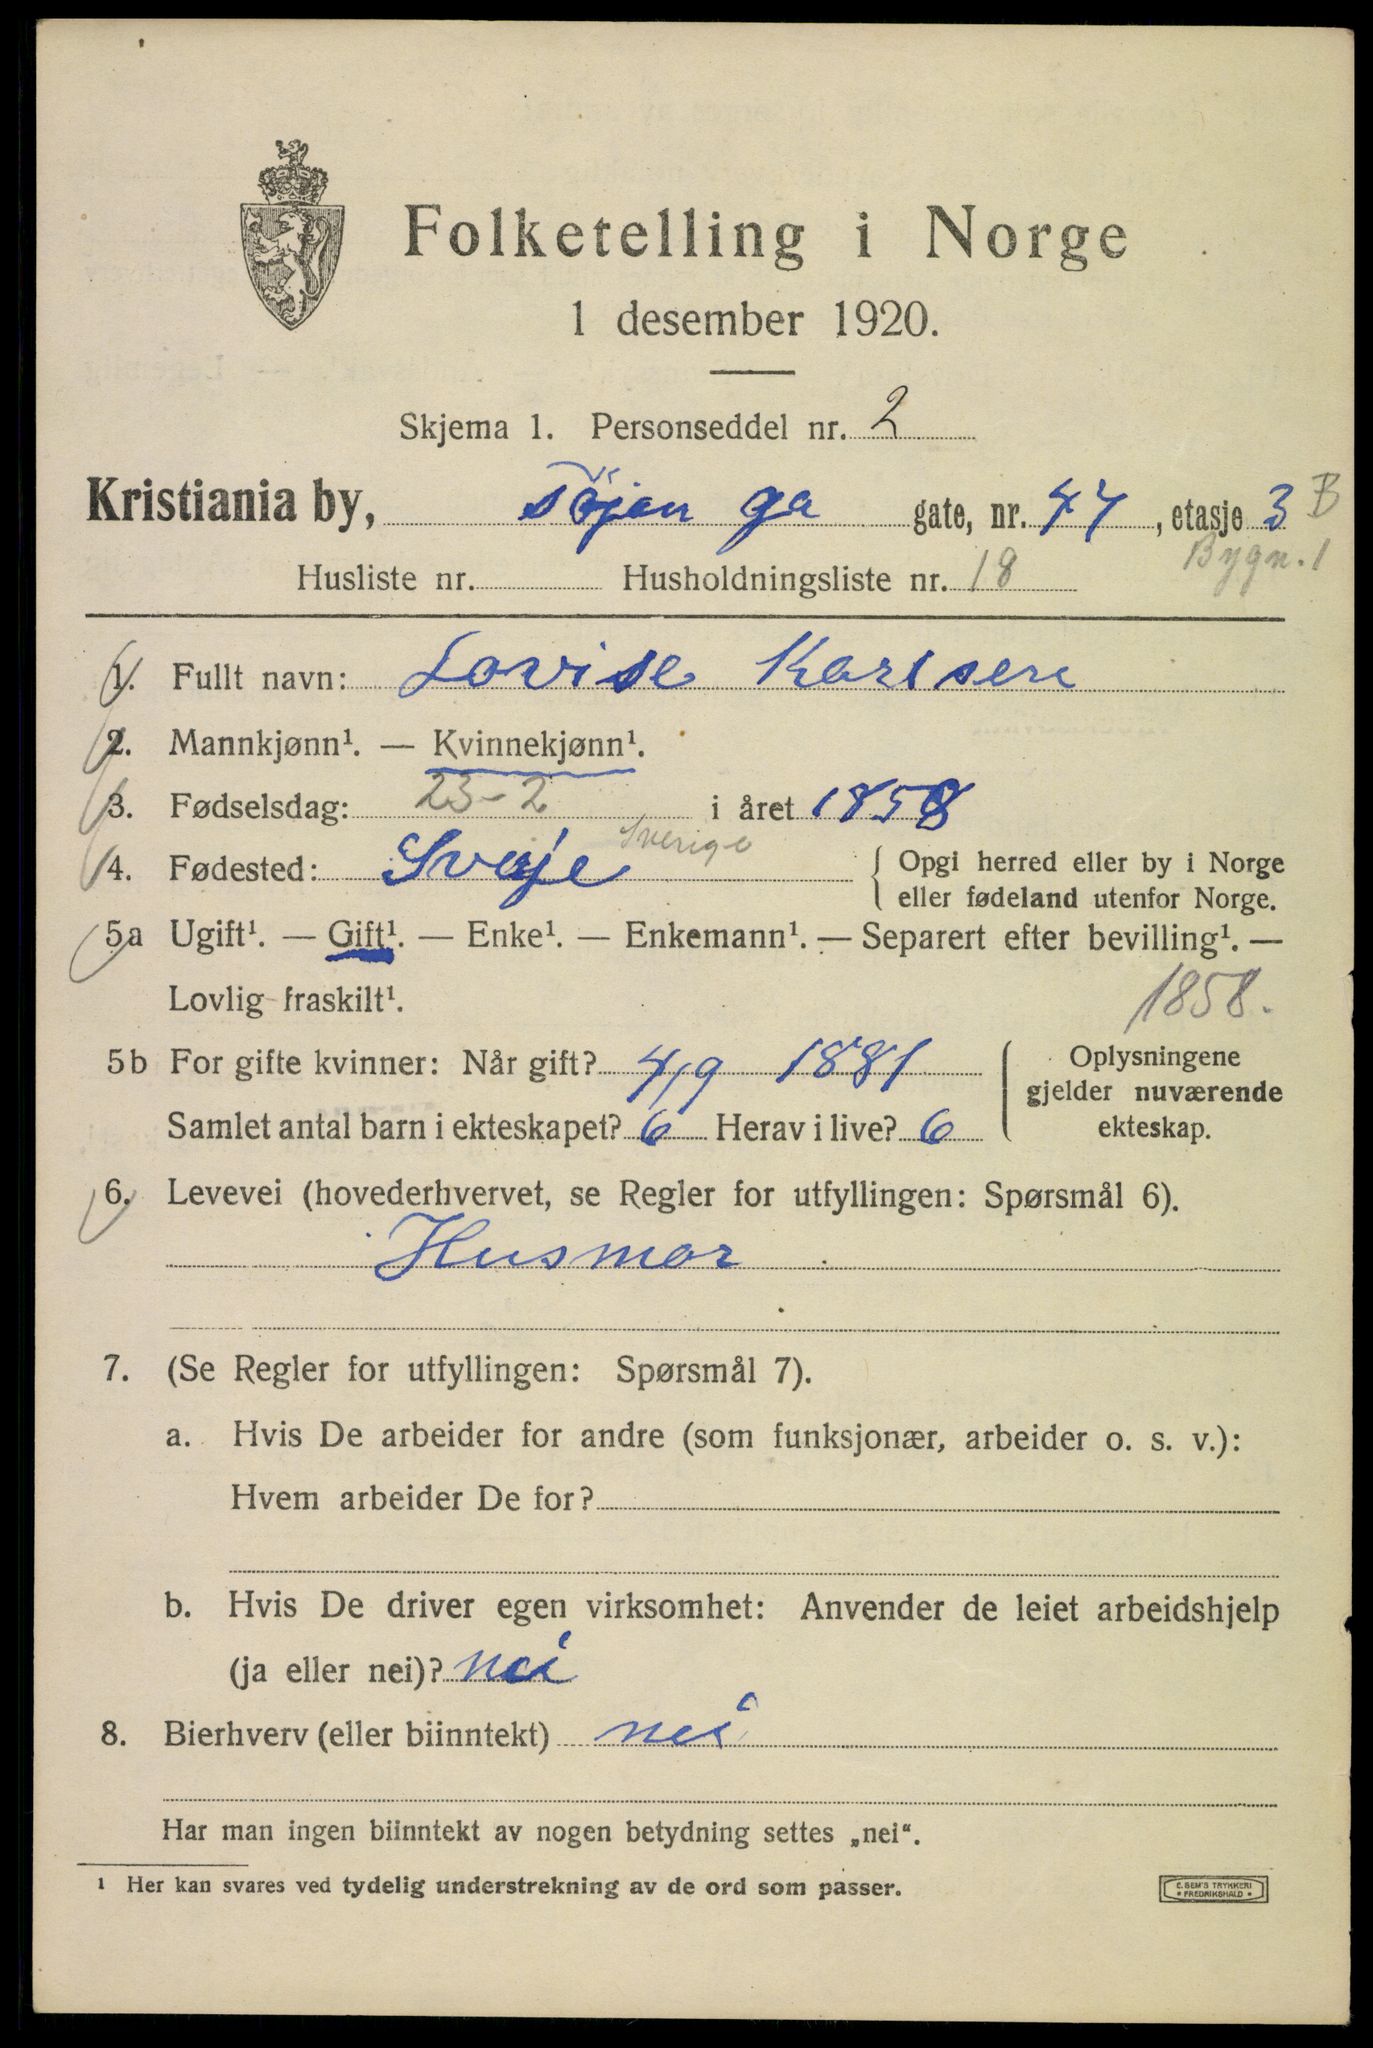 Folketelling i Norge
1 desember 1920.
Skjema 1. Personseddel nr. 2
Kristiania by, Tøjen ga gate, nr. 47, etasje 3 B
Bygn. 1
Husliste nr. Husholdningsliste nr. 18
1. Fullt navn: Lovise Karlsen
2. Mannkjønn¹. — Kvinnekjønn¹.
3. Fødselsdag: 23-2 i året 1858
4. Fødested: Sverje Sverige { Opgi herred eller by i Norge
eller fødeland utenfor Norge.
5a Ugift¹. — Gift¹. — Enke¹. — Enkemann¹. — Separert efter bevilling¹. —
Lovlig fraskilt¹. 1858.
5b For gifte kvinner: Når gift? 4/9 1881 { Oplysningene
gjelder nuværende
Samlet antal barn i ekteskapet? 6 Herav i live? 6 ekteskap.
6. Levevei (hovederhvervet, se Regler for utfyllingen: Spørsmål 6).
Husmor
7. (Se Regler for utfyllingen: Spørsmål 7).
a. Hvis De arbeider for andre (som funksjonær, arbeider o. s. v.):
Hvem arbeider De for?
b. Hvis De driver egen virksomhet: Anvender de leiet arbeidshjelp
(ja eller nei)? nei
8. Bierhverv (eller biinntekt) nei
Har man ingen biinntekt av nogen betydning settes „nei“.
¹ Her kan svares ved tydelig understrekning av de ord som passer.
C. SEM'S TRYKKERI
• FREDRIKSHALD •